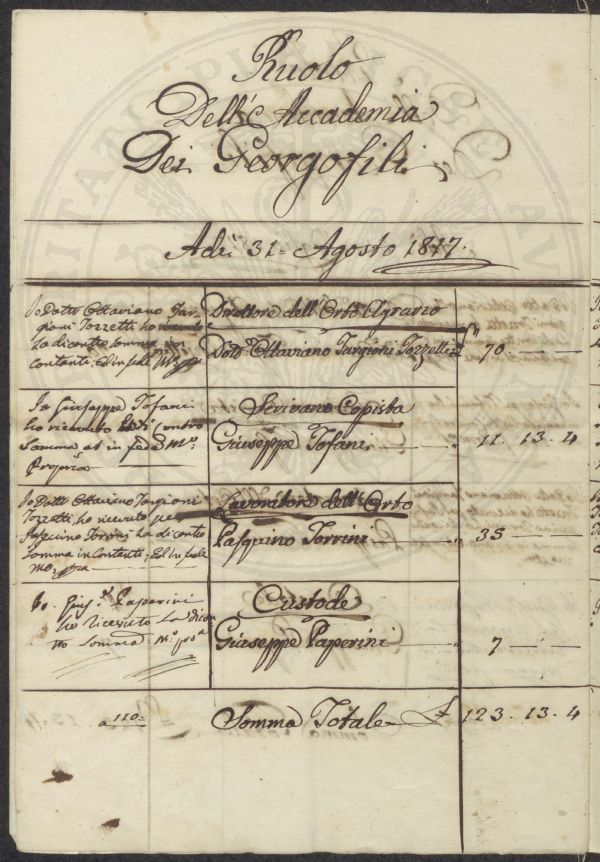 Ruolo
Dell'Accademia
Dei Georgofili
Adì 31 = Agosto 1817.
Io Dottr Ottaviano Tar-
gioni Tozzetti ho ricevuto
la dicontro somma in
contanti; Ed in fede Mo. ppa
Direttore dell'Orto Agrario
Dottr Ottaviano Targioni Tozzetti £ 70. — —
Io Giuseppe Tofani
ho ricevuto contro
Somma et in fede Mo.
Propria
Scrivano Copista
Giuseppe Tofani — „ 11. 13. 4
Io Dottr Ottaviano Targioni
Tozzetti, ho ricevuto per
Pasquino Torrini la dicontro
somma in Contanti; Ed in fede
mo. ppa
Lavoratore dell'Orto
Pasquino Torrini — „ 35 — —
Io. Giuse. Paperini
ho ricevuto La Dicon
tro Somma. Mo. proa
Custode
Giuseppe Paperini — „ 7 — —
a 110=
Somma Totale £ 123. 13. 4